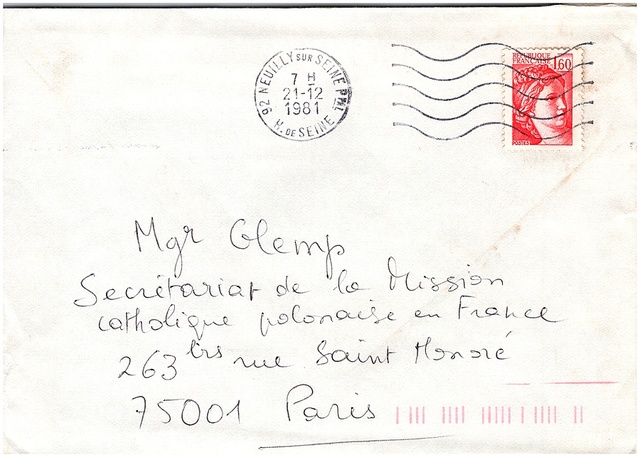 92 NEUILLY SUR SEINE PPAL
7 H
21-12
1981
H. DE SEINE
REPUBLIQUE
FRANCAISE
1,60
POSTES
Mgr Glemp
Secrétariat de la Mission
catholique polonaise en France
263 bis rue Saint Honoré
75001 Paris